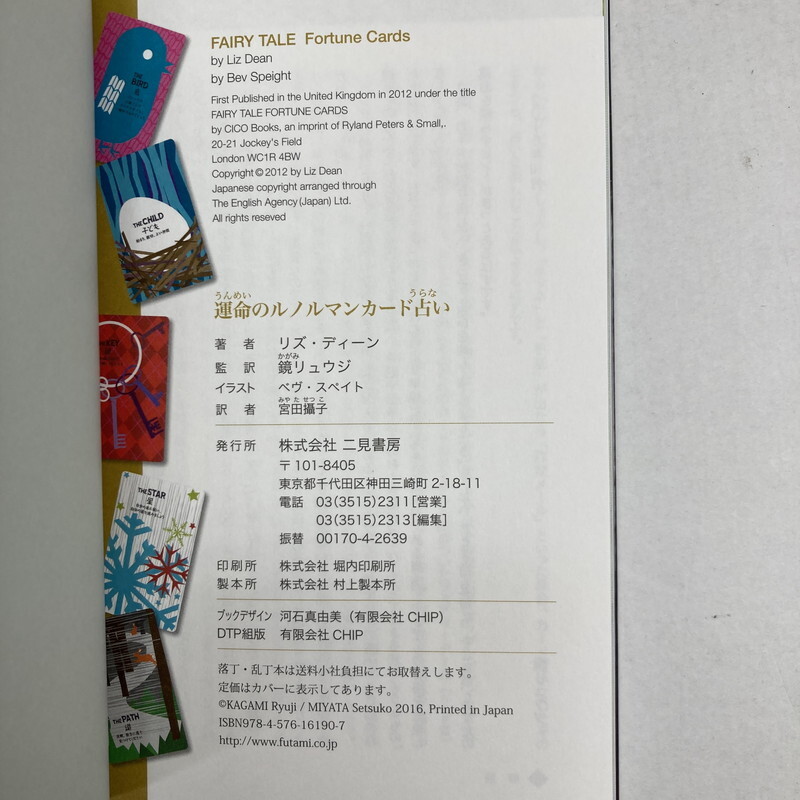 FAIRY TALE Fortune Cards
by Liz Dean
by Bev Speight
First Published in the United Kingdom in 2012 under the title
FAIRY TALE FORTUNE CARDS
by CICO Books, an imprint of Ryland Peters & Small,.
20-21 Jockey's Field
London WC1R 4BW
Copyright © 2012 by Liz Dean
Japanese copyright arranged through
The English Agency (Japan) Ltd.
All rights reseved
THE BIRD
THE CHILD
子ども
THE STAR
星
THE PATH
道
うんめい うらな
運命のルノルマンカード占い
著者 リズ・ディーン
かがみ
監訳 鏡リュウジ
イラスト ベヴ・スペイト
みや た せつ こ
訳者 宮田攝子
発行所 株式会社 二見書房
〒101-8405
東京都千代田区神田三崎町2-18-11
電話 03(3515)2311[営業]
03(3515)2313[編集]
振替 00170-4-2639
印刷所 株式会社 堀内印刷所
製本所 株式会社 村上製本所
ブックデザイン 河石真由美(有限会社CHIP)
DTP組版 有限会社CHIP
落丁・乱丁本は送料小社負担にてお取替えします。
定価はカバーに表示してあります。
©KAGAMI Ryuji / MIYATA Setsuko 2016, Printed in Japan
ISBN978-4-576-16190-7
http://www.futami.co.jp